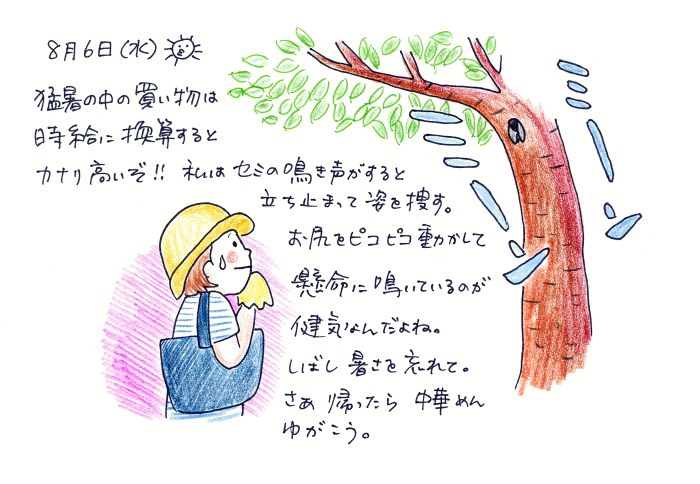 8月6日(水)
猛暑の中の買い物は
時給に換算すると
カナリ高いぞ!! 私はセミの鳴き声がすると
立ち止まって姿を捜す。
お尻をピコピコ動かして
懸命に鳴いているのが
健気なんだよね。
しばし暑さを忘れて。
さあ帰ったら中華めん
ゆがこう。